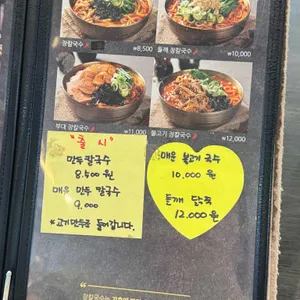 장칼국수
₩8,500
들깨 장칼국수
₩10,000
부대 장칼국수
₩11,000
불고기 장칼국수
₩12,000
"출시"
만두칼국수
8,500원
매운 만두 칼국수
9,000
*고기만두 들어갑니다.
매운 불고기 국수
10,000원
들깨 닭죽
12,000원
장칼국수는